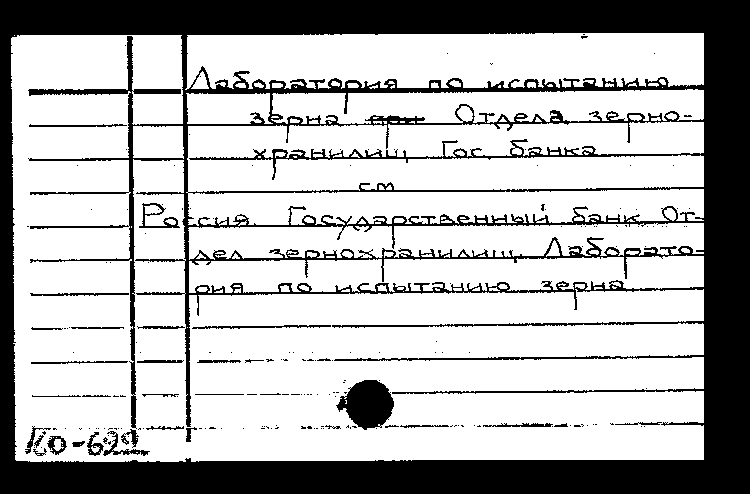 Лаборатория по испытанию
зерна при Отдела зерно-
хранилищ Гос. банка
см
Россия. Государственный банк. От-
дел зернохранилищ. Лаборато-
рия по испытанию зерна
КО-692